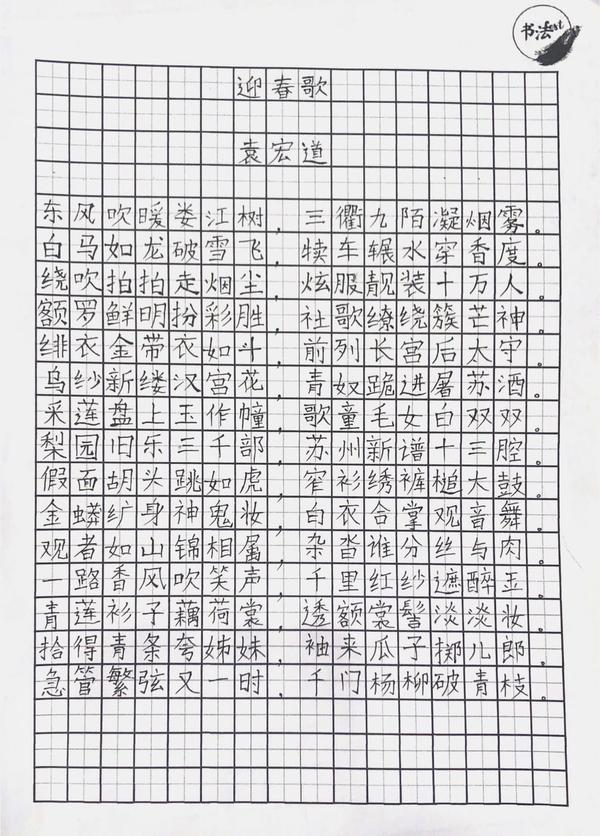 书法est
迎春歌
袁宏道
东风吹暖娄江树，三衢九陌凝烟雾。
白马如龙破雪飞，犊车辗水穿香度。
绕吹拍拍走烟尘，炫服靓装十万人。
额罗鲜明扮彩胜，社歌缭绕簇芒神。
绯衣金带衣如斗，前列长宫后太守。
乌纱新缕汉宫花，青奴跪进屠苏酒。
采莲盘上玉作幢，歌童毛女白双双。
梨园旧乐三千部，苏州新谱十三腔。
假面胡头跳如虎，窄衫绣裤槌大鼓。
金蟒纩身神鬼妆，白衣合掌观音舞。
观者如山锦相属，杂沓谁分丝与肉。
一路香风吹笑声，千里红纱遮醉玉。
青莲衫子藕荷裳，透额裳髻淡淡妆。
拾得青条夸姊妹，袖来瓜子掷儿郎。
急管繁弦又一时，千门杨柳破青枝。